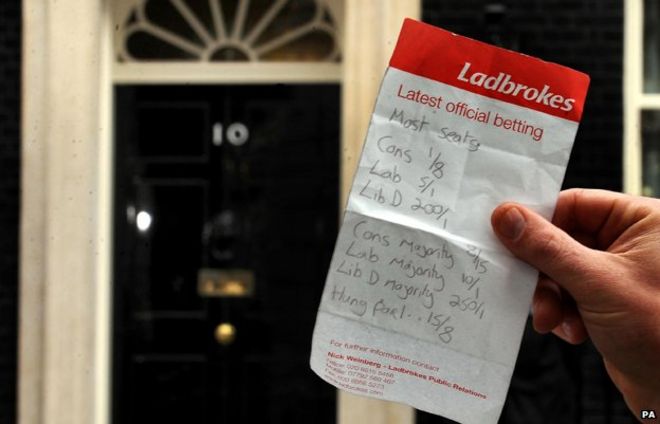 10
Ladbrokes
Latest official betting
Most seats
Cons 1/8
Lab 5/1
Lib D 200/1
Cons Majority 2/15
Lab Majority 10/1
Lib D majority 250/1
Hung Parl.. 15/8
For further information contact
Nick Weinberg - Ladbrokes Public Relations
PA